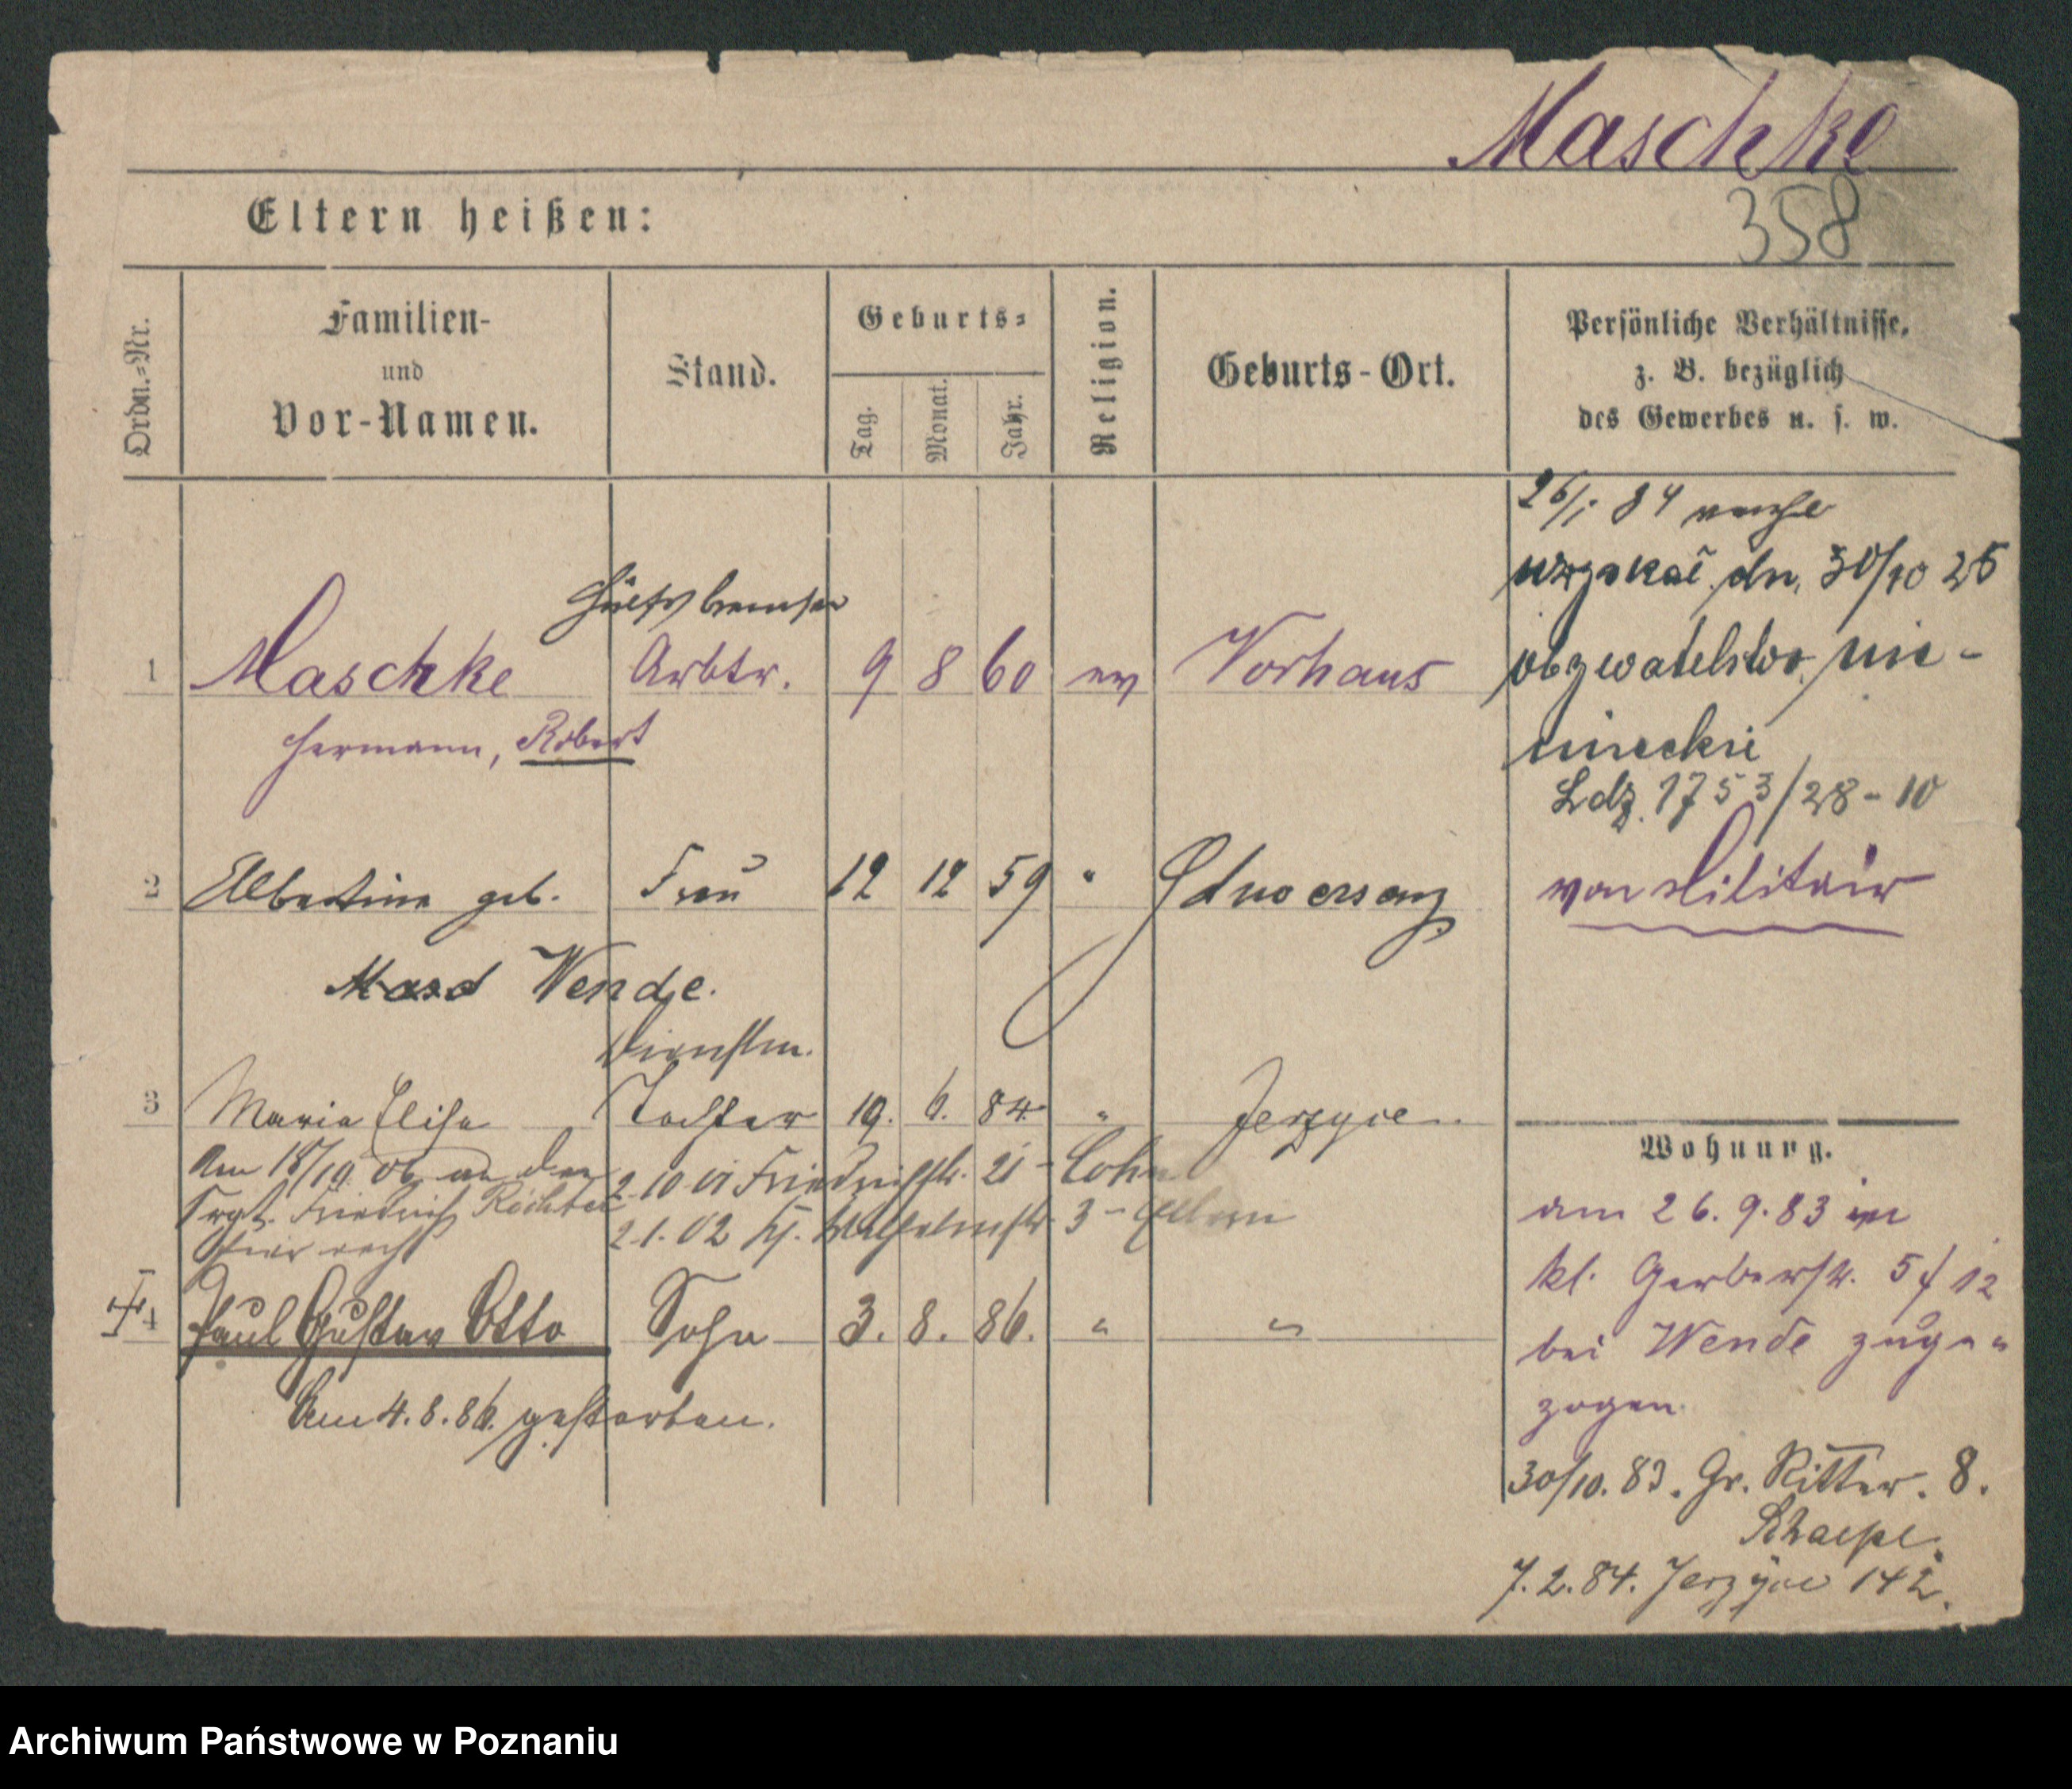 Maschke
358
Eltern heißen:
Ordn.=Nr.
Familien-
und
Vor-Namen.
Stand.
Geburts=
Tag.
Monat.
Jahr.
Religion.
Geburts-Ort.
Persönliche Verhältnisse,
z. B. bezüglich
des Gewerbes u. s. w.
Hülfsbremser
1 Maschke Arbtr. 9 8 60 ev Vorhaus
Hermann, Robert
26/1 84
uzyskał dn. 30/10 25
obywatelstwo nie-
mieckie
Ldz. 1753/28-10
von Militair
2 Albertine geb. Frau 12 12 59 "
Wende.
Dienstm.
3 Maria Elise Tochter 19. 6. 84 " Jerzyce.
Am 18/10 06 an den
Sergt. Friedrich Richter
2 10 01 Friedrichstr. 21 - Cohn
2.1.02 Wilhelmstr. 3 - Eltern
4 Paul Gustav Otto Sohn 3. 8. 86. " "
Am 4.8.86. gestorben.
Wohnung.
am 26.9.83 in
kl. Gerberstr. 5 / 12
bei Wende zuge=
zogen
30/10. 83. Gr. Ritter. 8.
7.2.84. Jerzyce 142.
Archiwum Państwowe w Poznaniu